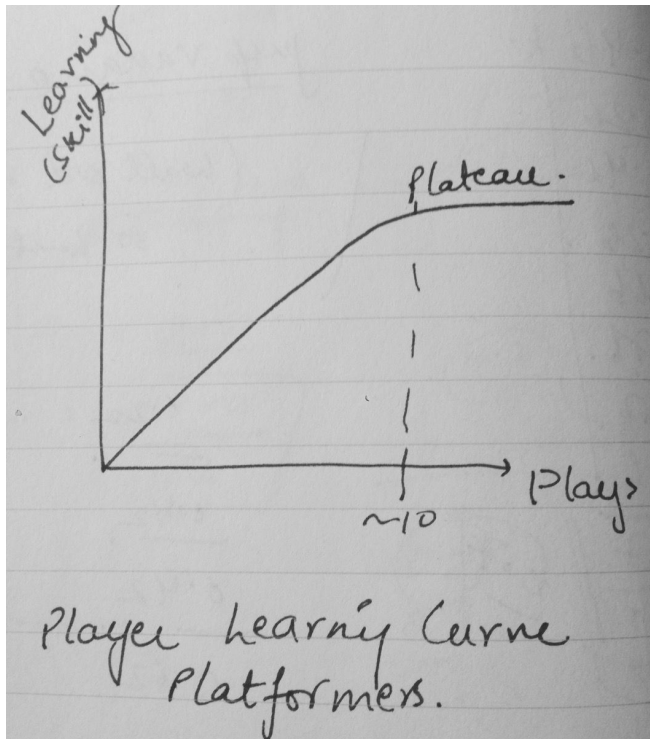 Learning
(Skill)
Plateau.
Plays
~10
Player Learning Curve
Platformers.